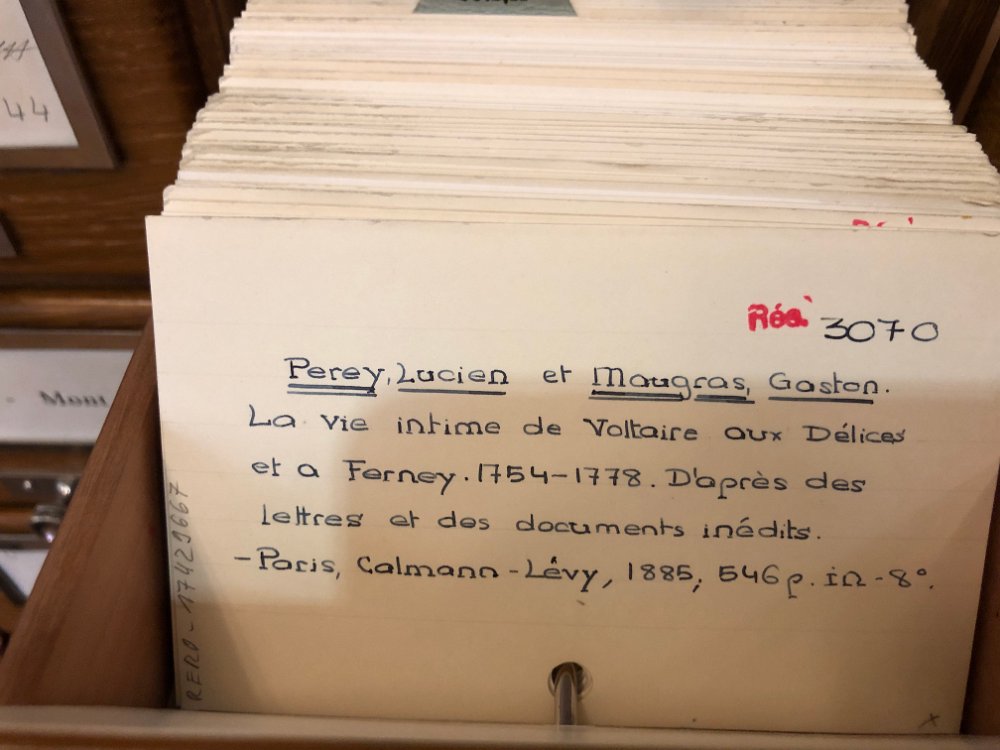 44
Mont
Réa 3070
Perey, Lucien et Maugras, Gaston.
La vie intime de Voltaire aux Délices
et a Ferney. 1754-1778. D'après des
lettres et des documents inédits.
- Paris, Calmann-Lévy, 1885, 546 p. in-8°.
RERO - 17429667
x